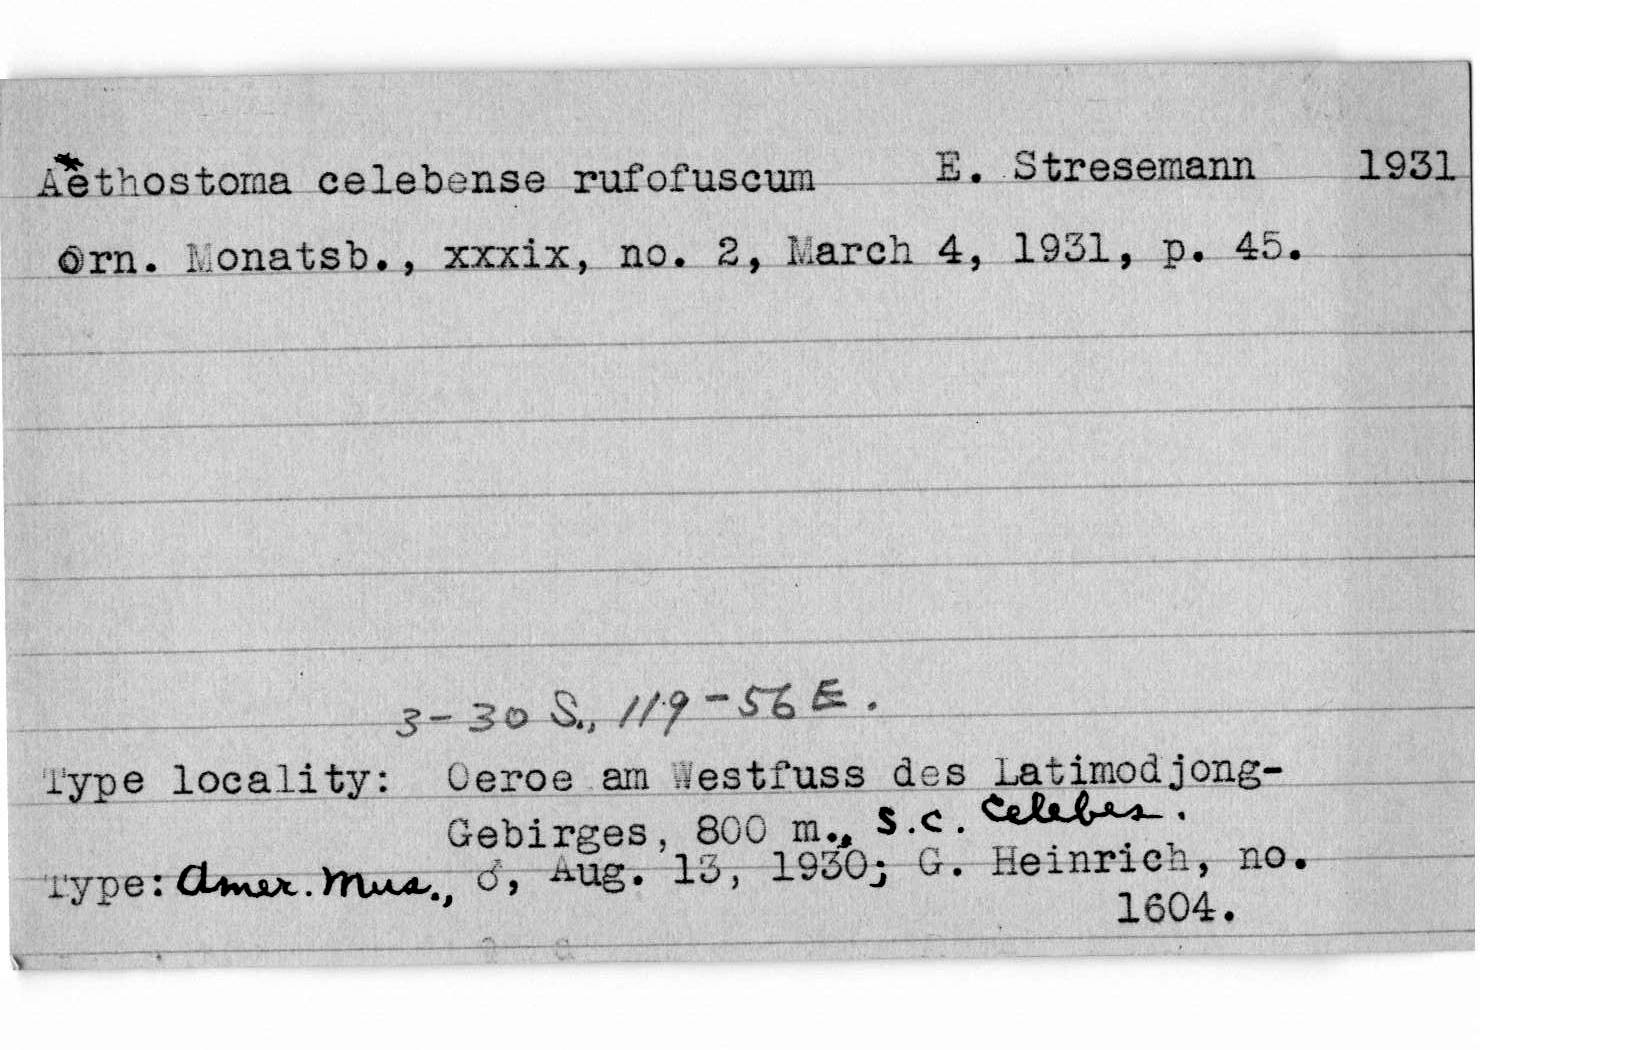 Aethostoma celebense rufofuscum E. Stresemann 1931
Orn. Monatsb., xxxix, no. 2, March 4, 1931, p. 45.
3-30 S., 119-56 E.
Type locality: Oeroe am Westfuss des Latimodjong-
Gebirges, 800 m., S.C. Celebes.
Type: Amer. Mus., ♂, Aug. 13, 1930; G. Heinrich, no.
1604.